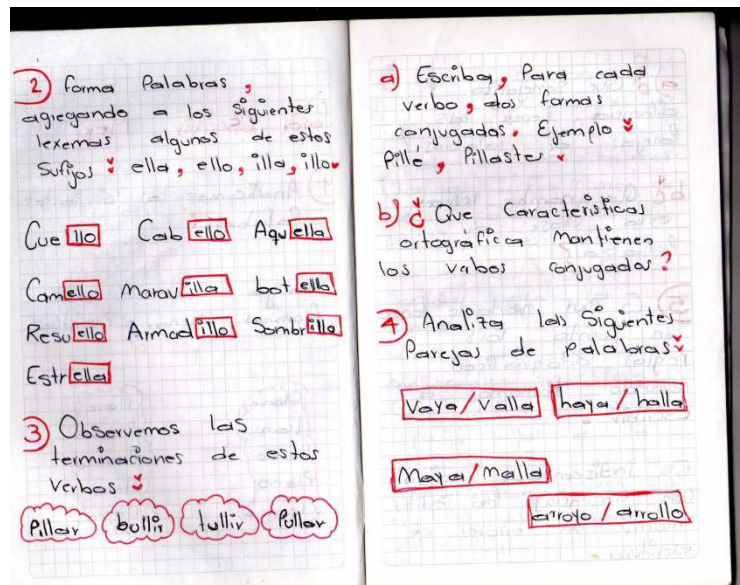 2) forma Palabras,
agregando a los siguientes
lexemas algunos de estos
Sufijos: ella, ello, illa, illo.
Cue llo Cab ello Aqu ella
Cam ello Marav illa bot ella
Resu ello Armad illo Sombr illa
Estr ella
3) Observemos las
terminaciones de estos
Verbos:
Pillar bullir tullir Pullar
a) Escriba, Para cada
verbo, dos formas
conjugados. Ejemplo:
Pillé, Pillaste.
b) ¿Que Caracteristicas
ortográfica Mantienen
los verbos conjugados?
4) Analiza las Siguientes
Parejas de palabras:
Vaya/Valla haya/halla
Maya/malla
arroyo/arrollo